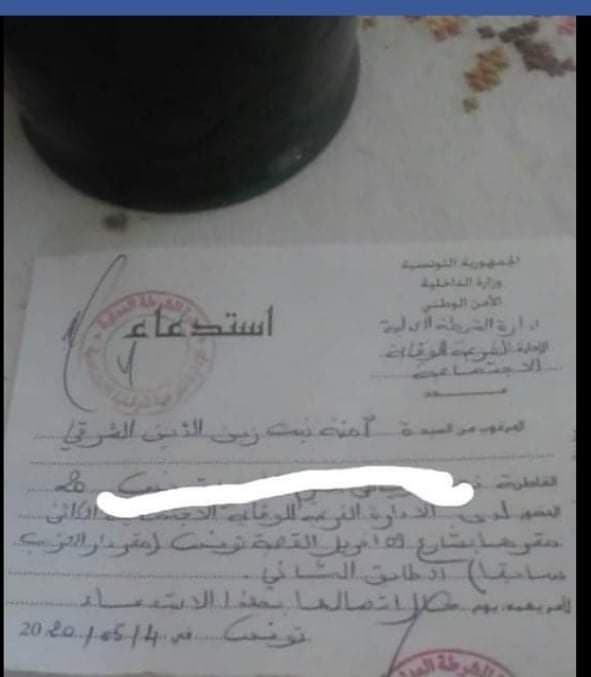 الجمهورية التونسية
وزارة الداخلية
الأمن الوطني
إدارة الشرطة العدلية
الإدارة الفرعية للوقاية
الاجتماعية
استدعاء
المرغوب من السيدة آمنة بنت زين الدين الشرقي
القاطنة
الحضور لدى الادارة الفرعية للوقاية الاجتماعية الكائن
مقرها بشارع 09 افريل القصبة تونس (مقر دار الحزب
سابقا) الطابق الثاني.
يوم حال اتصالها بهذا الاستدعاء
تونس في 2020/05/4